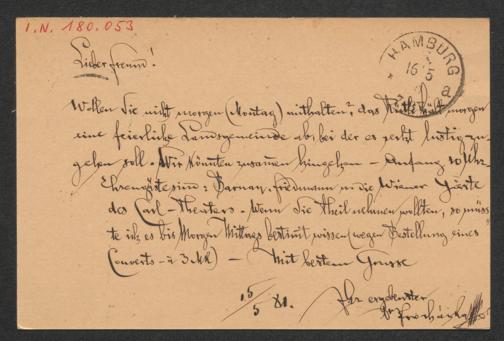 I.N. 180.053
HAMBURG
16 5
a
Lieber Freund!
Wollen Sie nicht morgen (Montag) mithalten? das hält morgen
eine feierliche Landsgemeinde ab, bei der es recht lustig zu-
gehen soll. Wir könnten zusammen hingehen – Anfang 10 Uhr
Ehrengäste sind: Barnay, Friedmann u. die Wiener Gäste
des Carl-Theaters. Wenn Sie Theil nehmen wollten, so müss
te ich es bis Morgen Mittags bestimt wissen (wegen Bestellung eines
Couverts – à 3 Mk) – Mit bestem Grusse
15/5 81. Ihr ergebenster